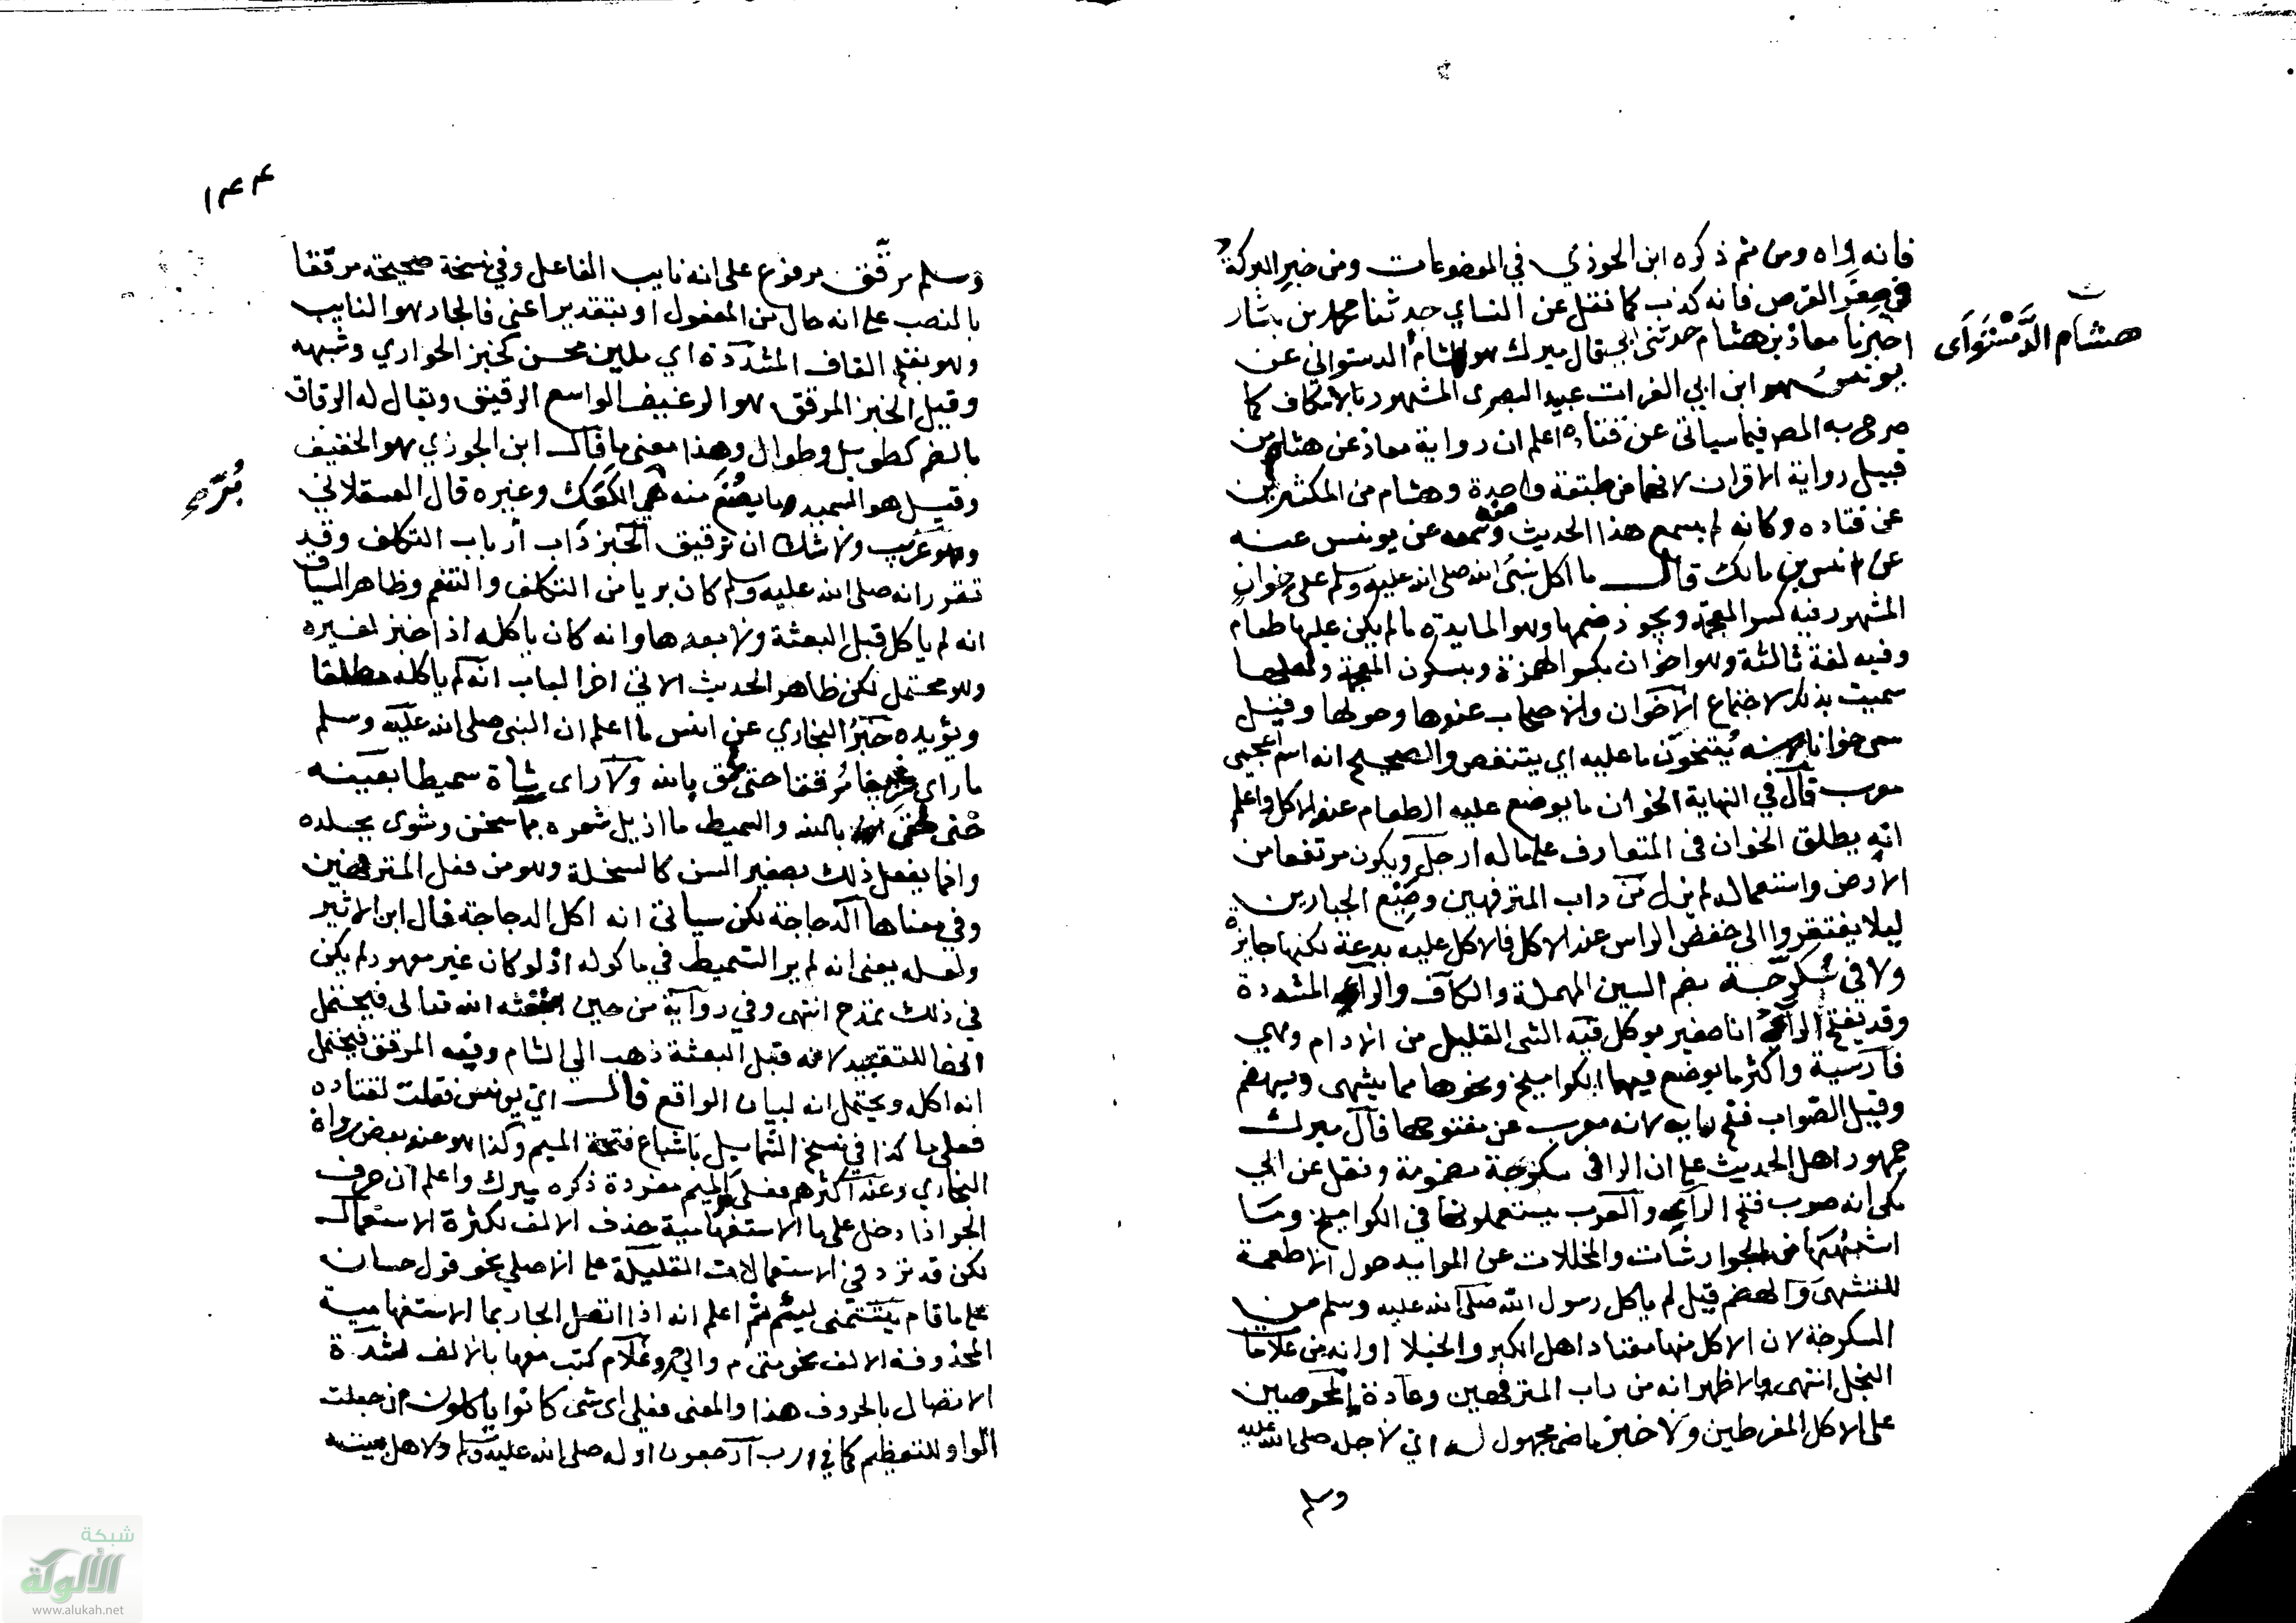 فانه واه ومن ثم ذكره ابن الجوزي في الموضوعات ومن خبر البركة
في صغر القرص فانه كذب كما نقل عن النساي حدثنا محمد بن بشار
اخبرنا معاذ بن هشام حدثني ابي قال ميرك هو هشام الدستواني عن
هشام الدَّسْتَوَاى
يونس هو ابن ابي الفرات عبيد البصرى المشهور بالاسكاف كما
صرح به المصر فيما سياتى عن قتاده اعلم ان رواية معاذ عن هشام من
قبيل رواية الاقران لانهما من طبقة واحدة وهشام من المكثرين
عن قتاده وكانه لم يسمع هذا الحديث منه وسمعه عن يونس عنه
عن انس بن مالك قال ما اكل نبي الله صلى الله عليه وسلم على خوان
المشهور فيه كسر المعجمة ويجوز ضمها وهو المايدة ما لم يكن عليها طعام
وفيه لغة ثالثة وهو اخوان بكسر الهمزة وبسكون المعجمة ولعلها
سميت بذلك لاجتماع الاخوان والاصحاب عندها وحولها وقيل
سمى خوانا لانه يُتخوّن ما عليه اي يتنقص والصحيح انه اسم اعجمى
معرب قال في النهاية الخوان ما يوضع عليه الطعام عند الاكل واعلم
انه يطلق الخوان في المتعارف على ما له ارجل ويكون مرتفعا من
الارض واستعماله لم يزل من داب المترفهين وصنع الجبارين
ليلا يفتقروا الى خفض الراس عند الاكل فالاكل عليه بدعة لكنها جايزة
ولا في سُكرّجة بضم السين المهملة والكاف والراء المشددة
وقد يفتح الراء انا صغير يوكل فيه الشى القليل من الادام وهي
فارسية واكثر ما يوضع فيها الكواميخ ونحوها مما يشهى ويهضم
وقيل الصواب فتح رايه لانه معرب عن مفتوحها قال ميرك
جمهور اهل الحديث على ان الرا في سكرجة مضمومة ونقل عن ابي
مكى انه صوب فتح الراء والعرب يستعملونها في الكواميخ وما
اشبهها من الجوارشات والمخللات عن الموايد حول الاطعمة
للتشهى والهضم قيل لم ياكل رسول الله صلى الله عليه وسلم من
السكرجة لان الاكل منها معتاد اهل الكبر والخيلا او انه من علامات
البخل انتهى والاظهر انه من داب المترفهين وعادة الحريصين
على الاكل المفرطين ولا خبز ماضى مجهول له اي لاجله صلى الله عليه
وسلم
١٤٤
وسلم مرقّق مرفوع على انه نايب الفاعل وفي نسخة صحيحة مرققا
بالنصب على انه حال من المفعول او بتقدير اعني فالجار هو النايب
وهو بفتح القاف المشددة اي ملين محسن كخبز الحواري وشبهه
وقيل الخبز المرقق هو الرغيف الواسع الرقيق ويقال له الرقاق
بالضم كطويل وطوال وهذا معنى ما قال ابن الجوزي هو الخفيف
وقيل هو السميد وما يصنع منه من الكعك وغيره قال العسقلاني
وهو غريب ولا شك ان ترقيق الخبز داب ارباب التكلف وقد
تقرر انه صلى الله عليه وسلم كان بريا من التكلف والتنعم وظاهر السياق
انه لم ياكل قبل البعثة ولا بعدها وانه كان ياكله اذا خبز لغيره
وهو محتمل لكن ظاهر الحديث الاتي اخر الباب انه لم ياكله مطلقا
ويؤيده خبر البخاري عن انس ما اعلم ان النبى صلى الله عليه وسلم
ما راى رغيفا مُرققا حتى لحق بالله ولا راى شاة سميطا بعينه
حتى لحق بالله والسميط ما ازيل شعره بما سخن وشوى بجلده
وانما يفعل ذلك بصغير السن كالسخلة وهو من فعل المترفهين
وفي معناها الدجاجة لكن سياتى انه اكل الدجاجة قال ابن الاثير
ولعله يعنى انه لم ير السميط في ماكوله اذ لو كان غير معهود لم يكن
في ذلك تمدح انتهى وفي رواية من حين ابتعثه الله تعالى فيحتمل
للتقييد لانه قبل البعثة ذهب الى الشام وفيه المرقق فيحتمل
انه اكله ويحتمل انه لبيان الواقع قال اي يونس فقلت لقتاده
فعلى ما كذا في نسخ الشمايل باشباع فتحة الميم وكذا هو عند بعض رواة
البخاري وعند اكثرهم فعلى م الميم مفردة ذكره ميرك واعلم ان حرف
الجر اذا دخل على ما الاستفهامية حذف الالف لكثرة الاستعمال
لكن قد ترد في الاستعمالات القليلة على الاصل نحو قول حسان
على ما قام يشتمنى ليئم ثم اعلم انه اذا اتصل الجار بما الاستفهامية
المحذوفة الالف نحو حتى م والى م وعلام كتب معها بالالف لشدة
الاتصال بالحروف هذا والمعنى فعلى اى شى كانوا ياكلون ان جعلت
الواو للتعظيم كما في رب ارجعون او له صلى الله عليه وسلم ولاهل بيته
شبكة
الألوكة
www.alukah.net